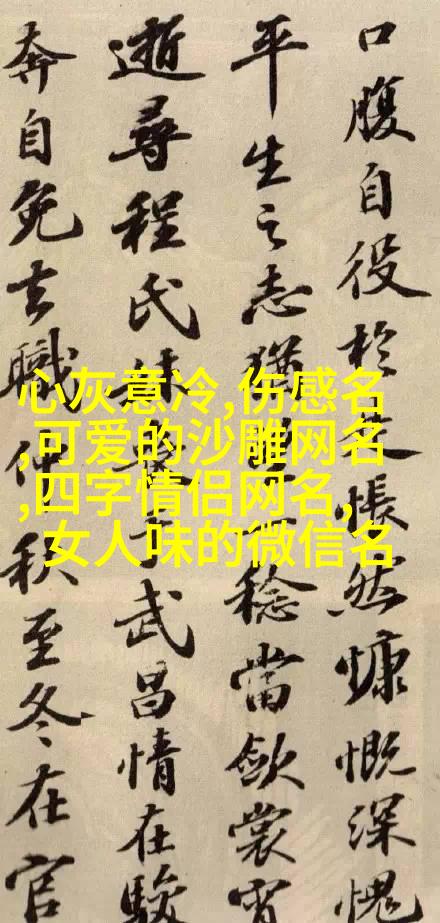 口腹自役於是悵然慷慨深愧
平生之志猶稔當斂裳宵
逝尋程氏妹于武昌情在駿
奔自免去職仲秋至冬在官
心灰意冷,伤感名
,可爱的沙雕网名
,四字情侣网名,
女人味的微信名